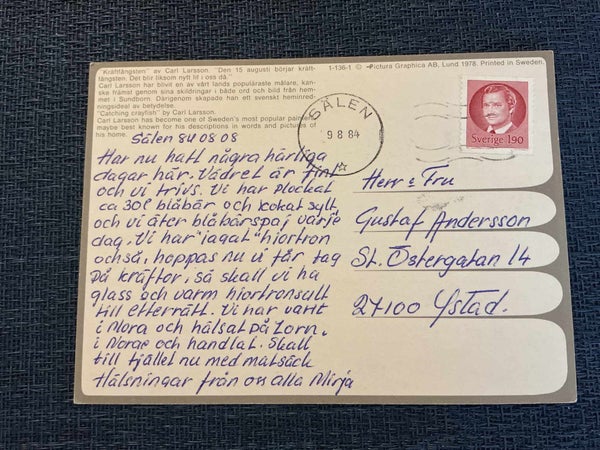 "Kräftfångsten" av Carl Larsson. "Den 15 augusti börjar kräft-
fångsten. Det blir liksom nytt lif i oss då."
Carl Larsson har blivit en av vårt lands populäraste målare, kän-
ske främst genom sina skildringar i både ord och bild från hem-
met i Sundborn. Därigenom skapade han ett svenskt heminred-
ningsideal av betydelse.
"Catching crayfish" by Carl Larsson.
Carl Larsson has become one of Sweden's most popular painters,
maybe best known for his descriptions in words and pictures of
his home.
1-136-1 © Pictura Graphica AB, Lund 1978. Printed in Sweden.
SÄLEN
9 8 84
Sverige 190
Sälen 84 08 08
Har nu haft några härliga
dagar här. Vädret är fint
och vi trivs. Vi har plockat
ca 30l blåbär och kokat sylt
och vi äter blåbärspaj varje
dag. Vi har "jagat" hjortron
också, hoppas nu vi får tag
på kräftor, så skall vi ha
glass och varm hjortronsylt
till efterrätt. Vi har varit
i Mora och hälsat på Zorn,
i Norge och handlat. Skall
till fjället nu med matsäck
Hälsningar från oss alla Mirja
Herr o Fru
Gustaf Andersson
St. Östergatan 14
27100 Ystad.